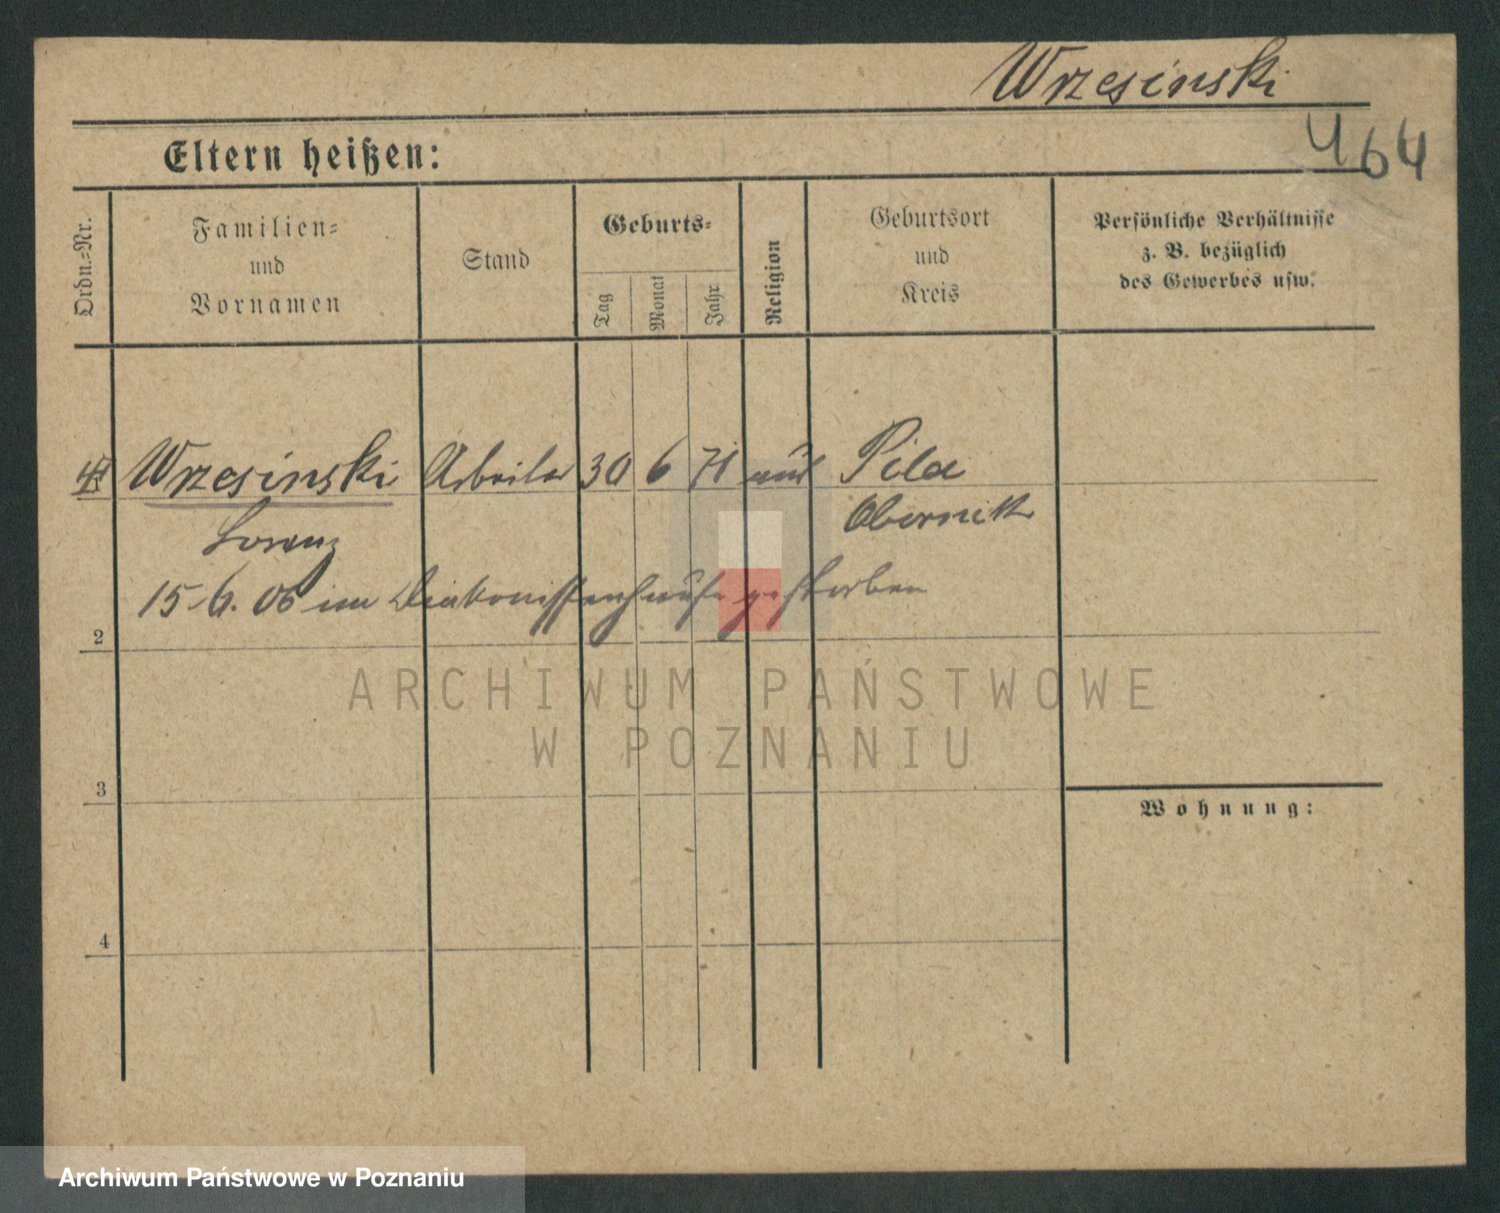 Wrzesinski
464
Eltern heißen:
Ordn.=Nr.
Familien=
und
Vornamen
Stand
Geburts=
Tag
Monat
Jahr
Religion
Geburtsort
und
Kreis
Persönliche Verhältnisse
z. B. bezüglich
des Gewerbes usw.
Wrzesinski Arbeiter 30 6 71 Pila
Obernik
Lorenz
15.6.06 im Diakonissenhause gestorben
2
ARCHIWUM PAŃSTWOWE
W POZNANIU
3
Wohnung:
4
Archiwum Państwowe w Poznaniu